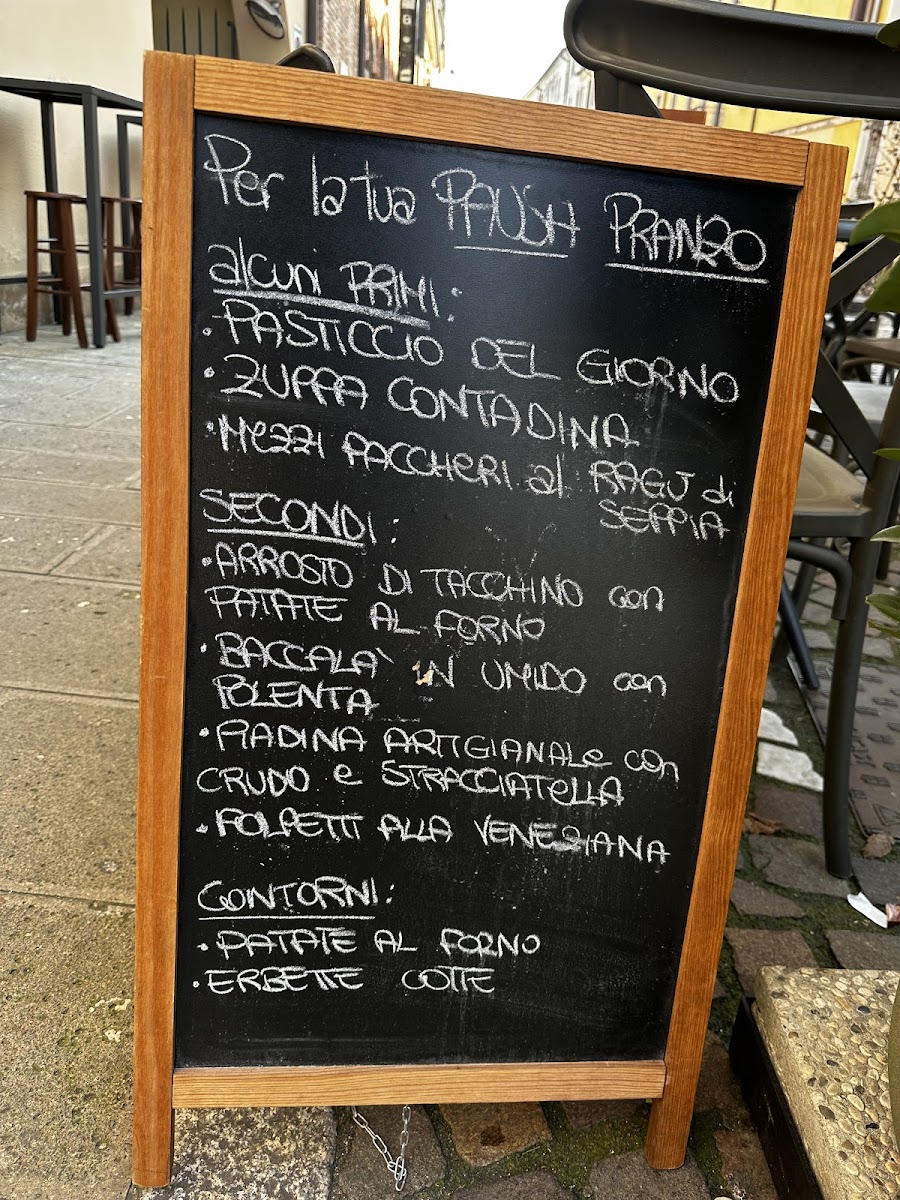 Per la tua PAUSA PRANZO
alcuni PRIMI:
• PASTICCIO DEL GIORNO
• ZUPPA CONTADINA
• Mezzi PACCHERI al RAGU di
SEPPIA
SECONDI:
• ARROSTO DI TACCHINO con
PATATE AL FORNO
• BACCALA' IN UMIDO con
POLENTA
• PIADINA ARTIGIANALe con
CRUDO e STRACCIATeLLA
• FOLPETTI ALLA VENEZIANA
CONTORNI:
• PATATE AL FORNO
• ERBETTE COTTE